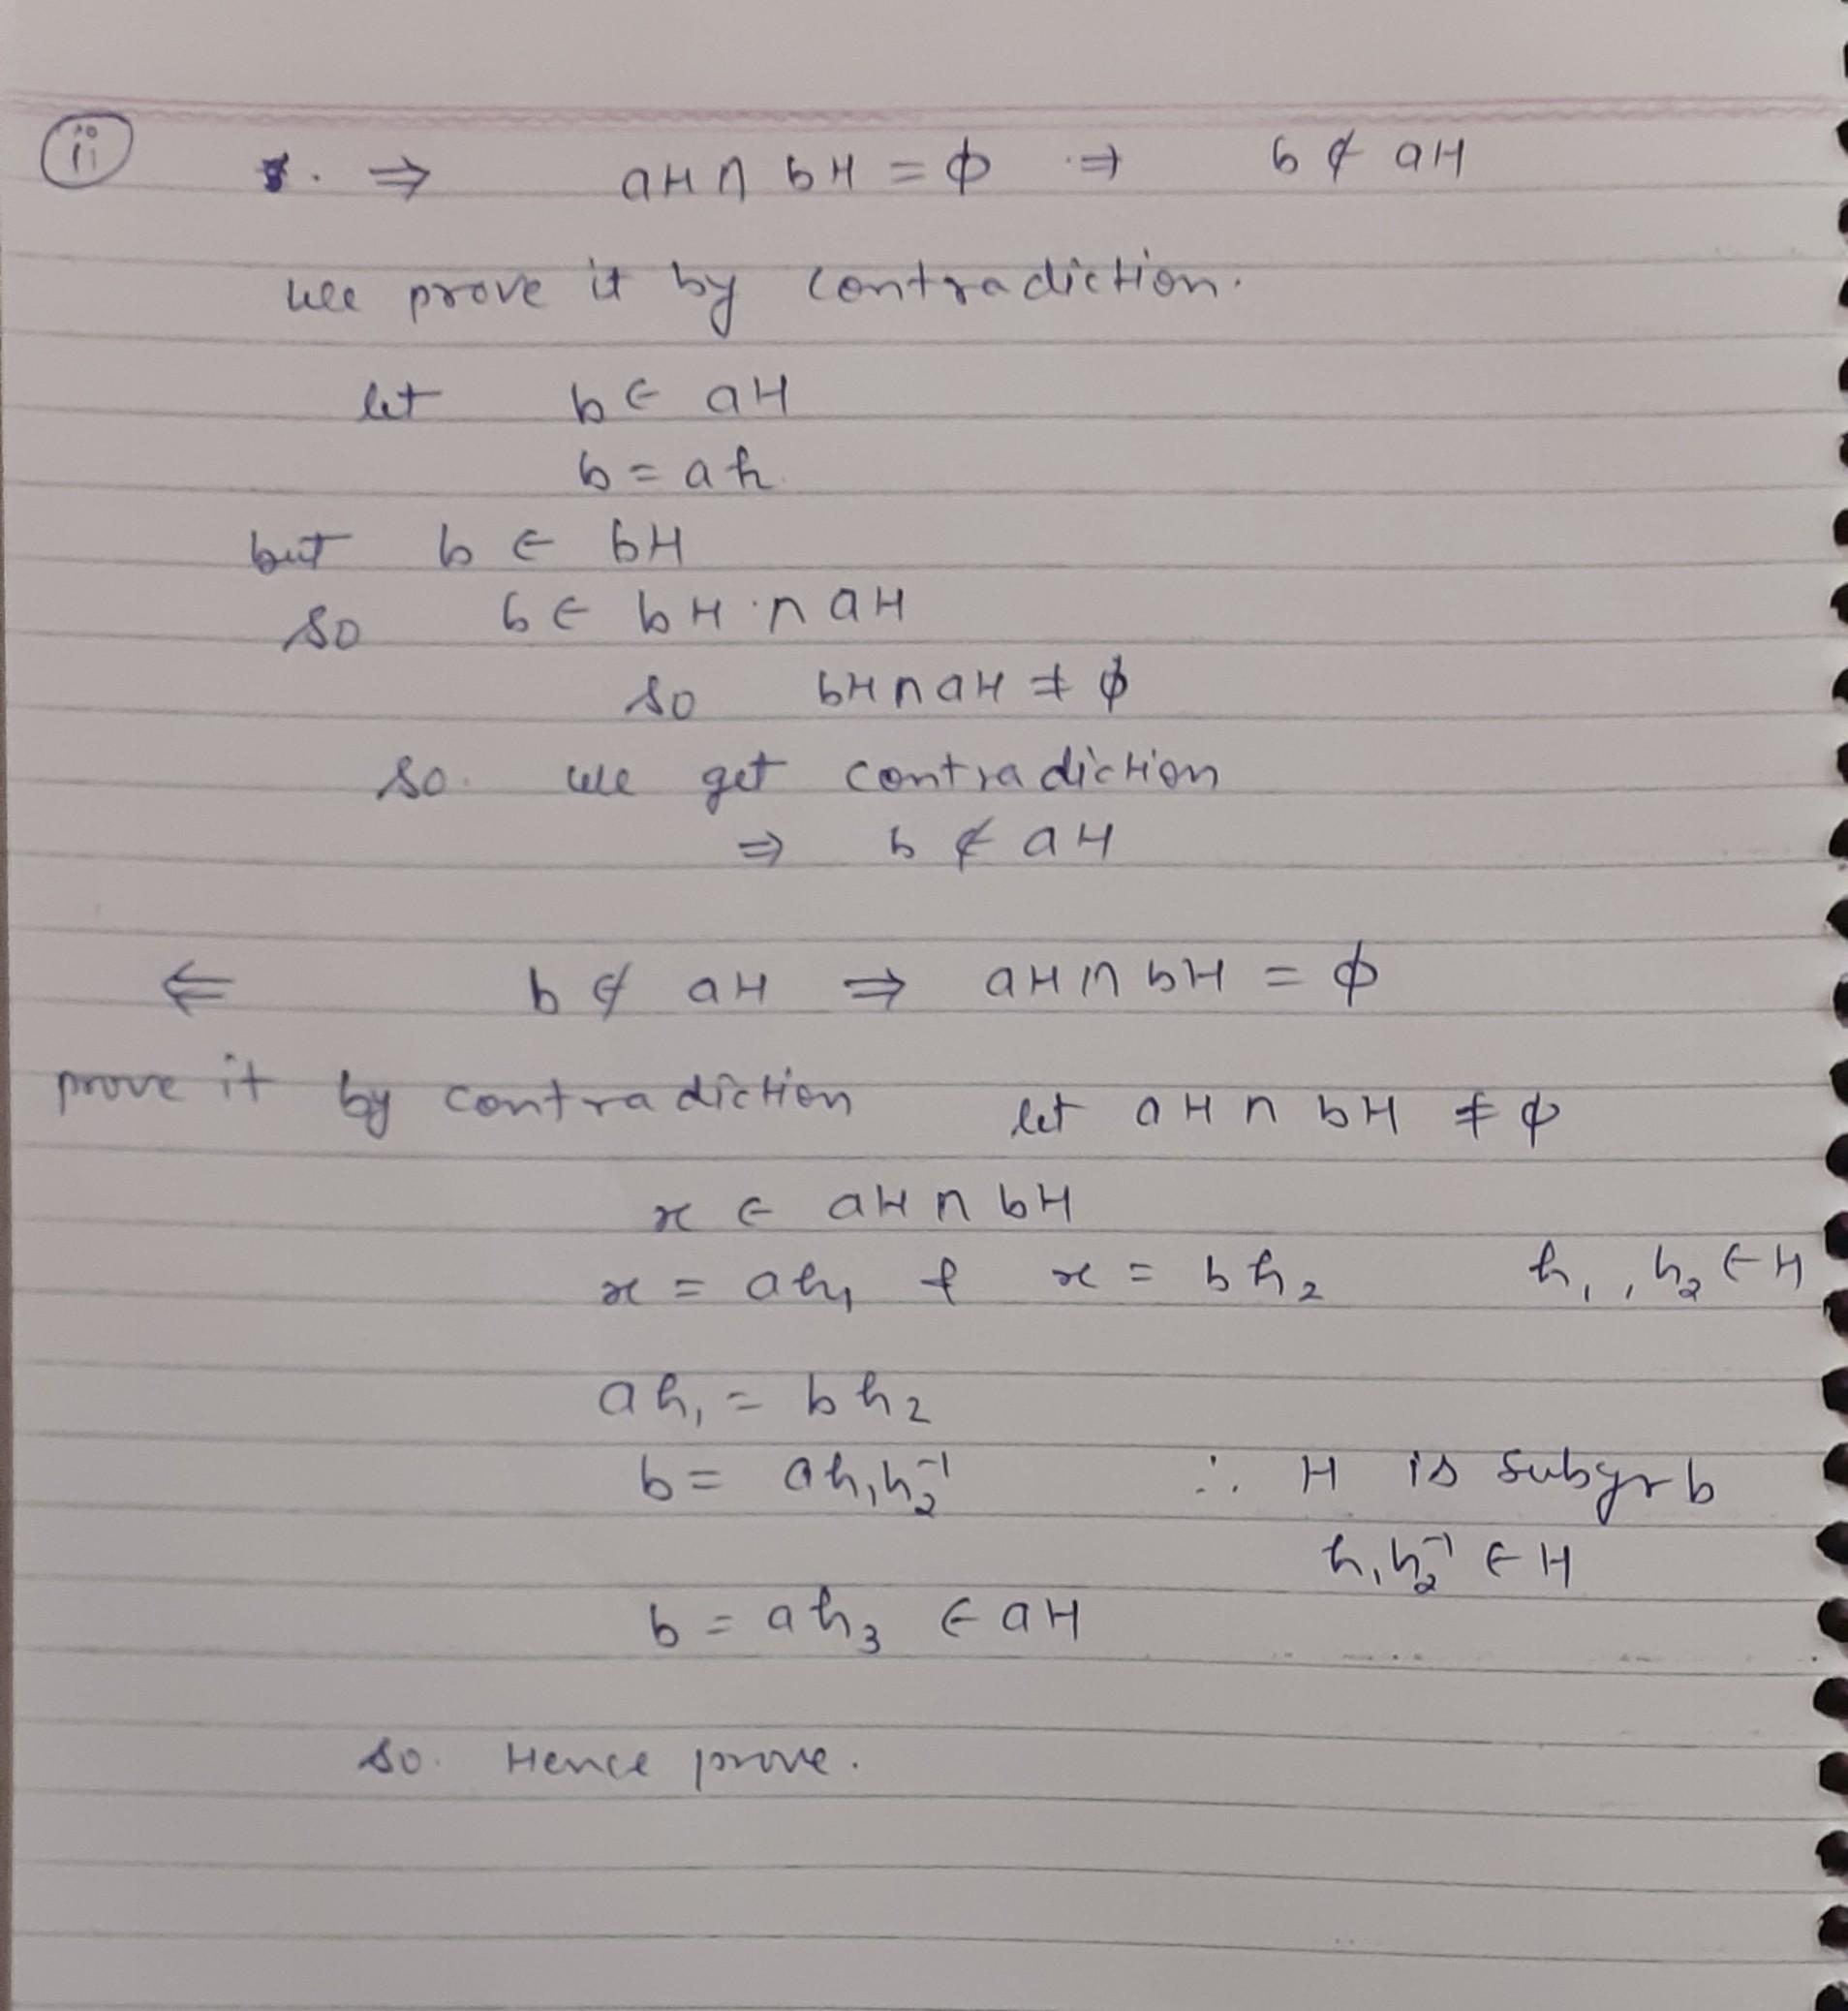 ii ⇒ aH ∩ bH = ϕ ⇒ b ∉ aH
we prove it by contradiction.
let b ∈ aH
b = ah
but b ∈ bH
so b ∈ bH ∩ aH
so bH ∩ aH ≠ ϕ
so. we get contradiction
⇒ b ∉ aH
⇐ b ∉ aH ⇒ aH ∩ bH = ϕ
prove it by contradiction let aH ∩ bH ≠ ϕ
x ∈ aH ∩ bH
x = ah₁ & x = bh₂ h₁, h₂ ∈ H
ah₁ = bh₂
b = ah₁h₂⁻¹ ∴ H is subgrb
h₁h₂⁻¹ ∈ H
b = ah₃ ∈ aH
so. Hence prove.